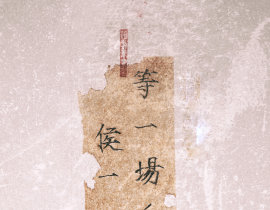 等一場
侯一